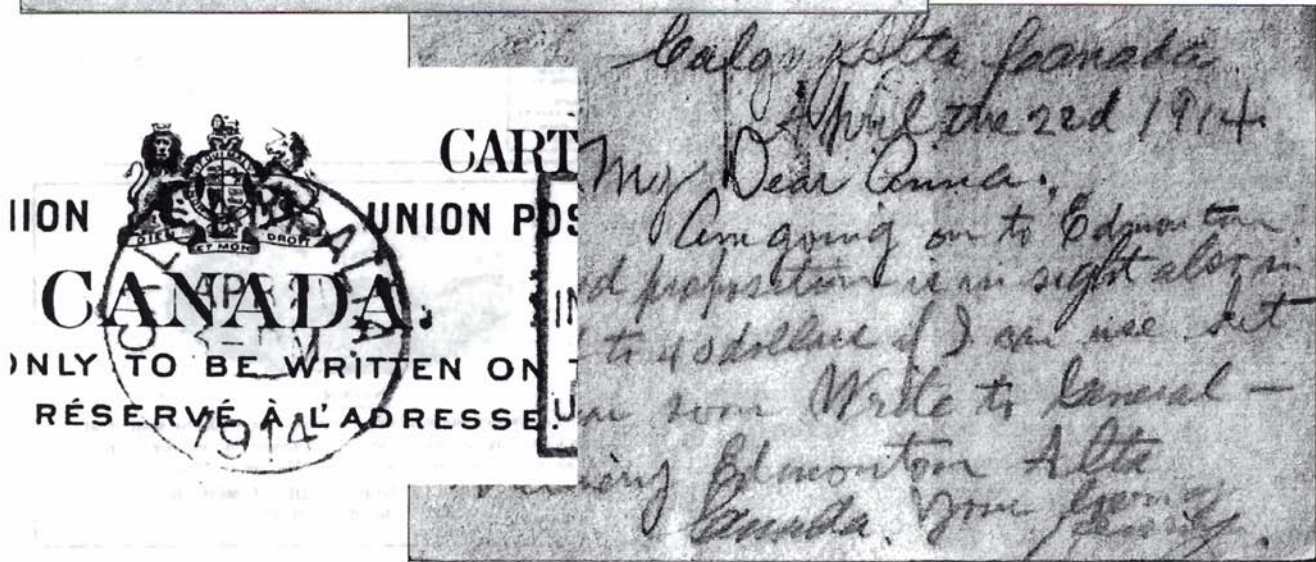 CART
UNION POS
DIEU ET MON DROIT
CANADA.
ONLY TO BE WRITTEN ON
RÉSERVÉ À L'ADRESSE.
APR
1914
Canada
April the 22d 1914
My Dear Anna.
Am going on to Edmonton
d proposition is in sight also in
to 40 dollars if I can use
soon Write to General -
Edmonton Alta
Canada. Your